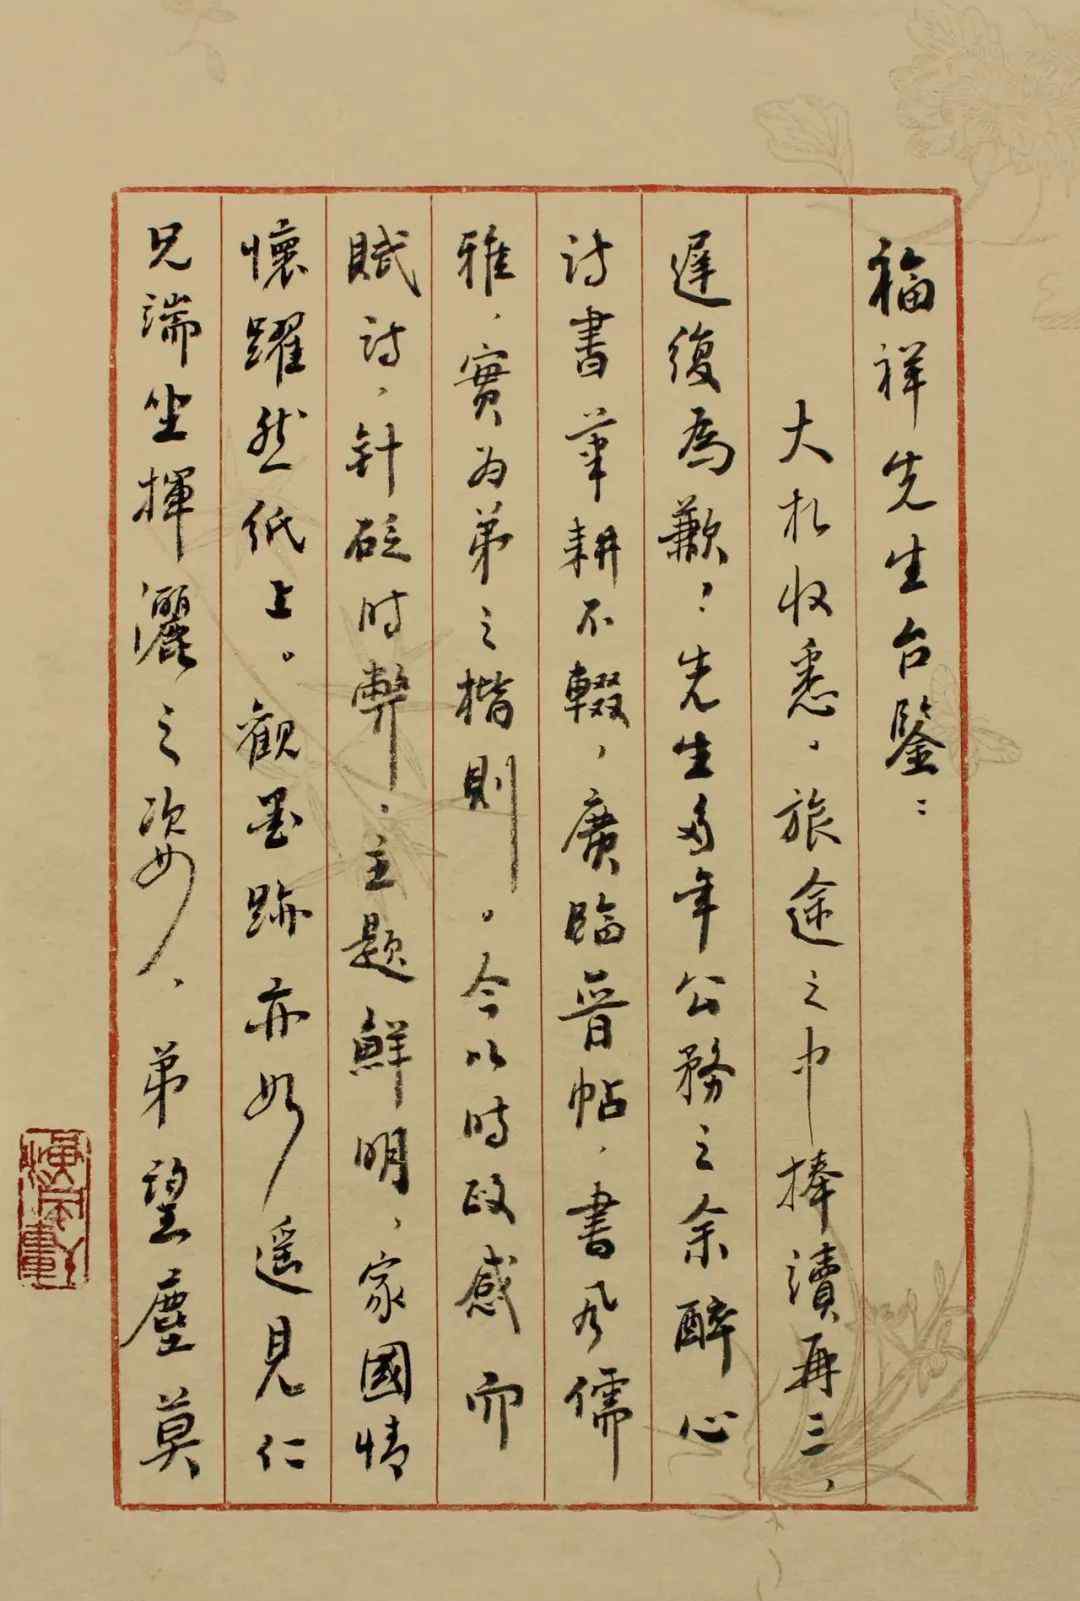 福祥先生台鑒：
大札收悉，旅途之中捧讀再三，
遲復為歉！先生多年公務之余醉心
诗書筆耕不輟，廣臨晉帖，書风儒
雅，實为弟之楷則。今以時政感而
賦诗，針砭时弊，主題鮮明，家國情
懷躍然紙上。觀墨跡亦如遥見仁
兄端坐揮灑之姿，弟望塵莫